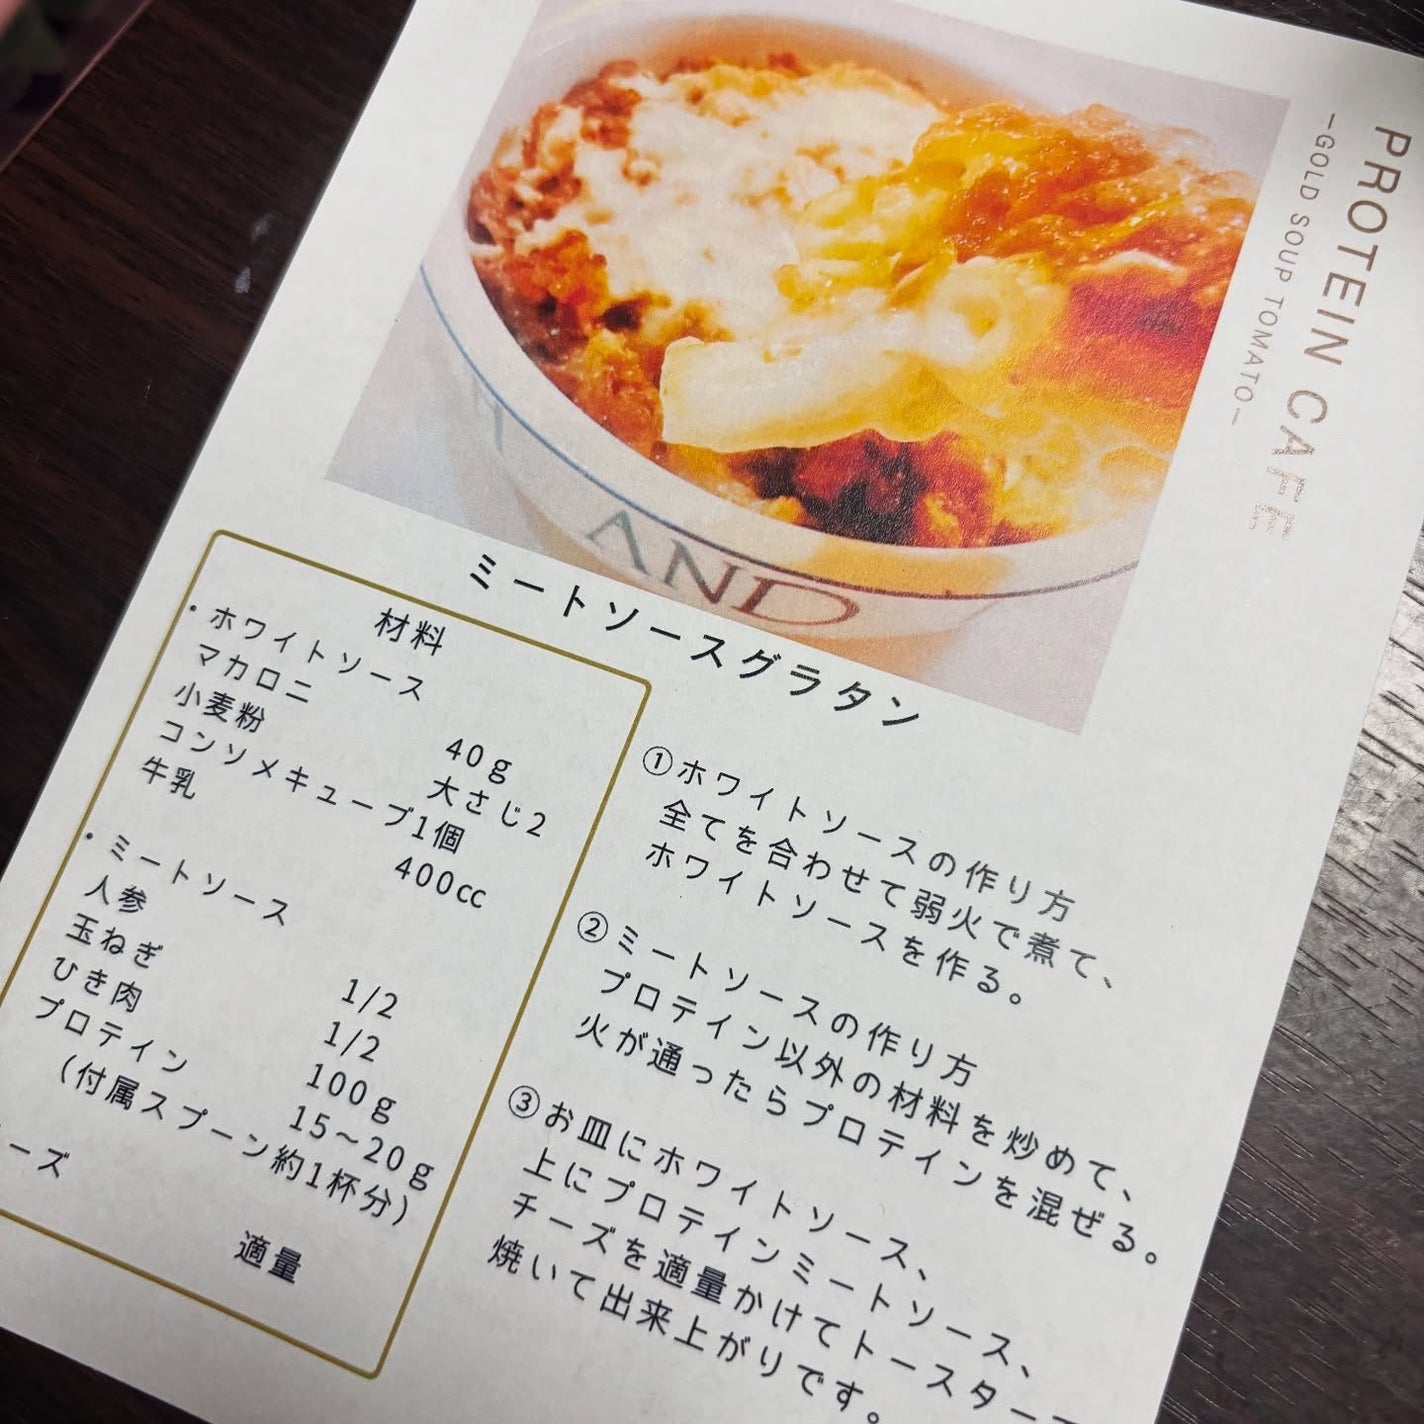 PROTEIN CAFE
—GOLD SOUP TOMATO—
AND
ミートソースグラタン
材料
・ホワイトソース
マカロニ 40g
小麦粉 大さじ2
コンソメキューブ1個
牛乳 400cc
・ミートソース
人参 1/2
玉ねぎ 1/2
ひき肉 100g
プロテイン 15〜20g
(付属スプーン約1杯分)
ーズ 適量
①ホワイトソースの作り方
全てを合わせて弱火で煮て、
ホワイトソースを作る。
②ミートソースの作り方
プロテイン以外の材料を炒めて、
火が通ったらプロテインを混ぜる。
③お皿にホワイトソース、
上にプロテインミートソース、
チーズを適量かけてトースター
焼いて出来上がりです。